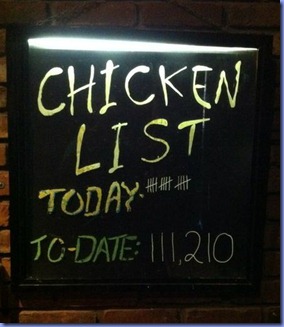 CHICKEN
LIST
TODAY: 卌 卌 卌
TO-DATE: 111,210